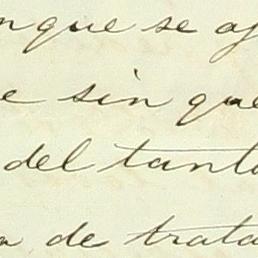 nque se af
e sin que
del tanto
a de trata